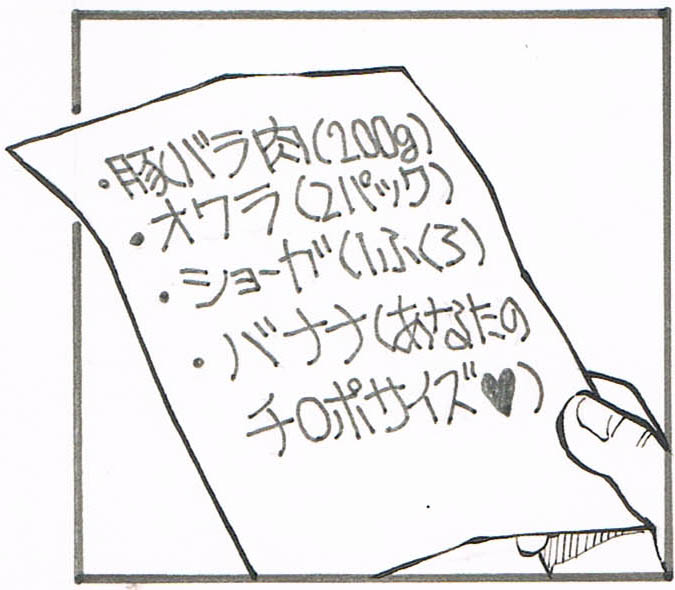 ・豚バラ肉(200g)
・オワラ(2パック)
・ショーガ(1ふくろ)
・バナナ(あなたの
チ○ポサイズ♥)